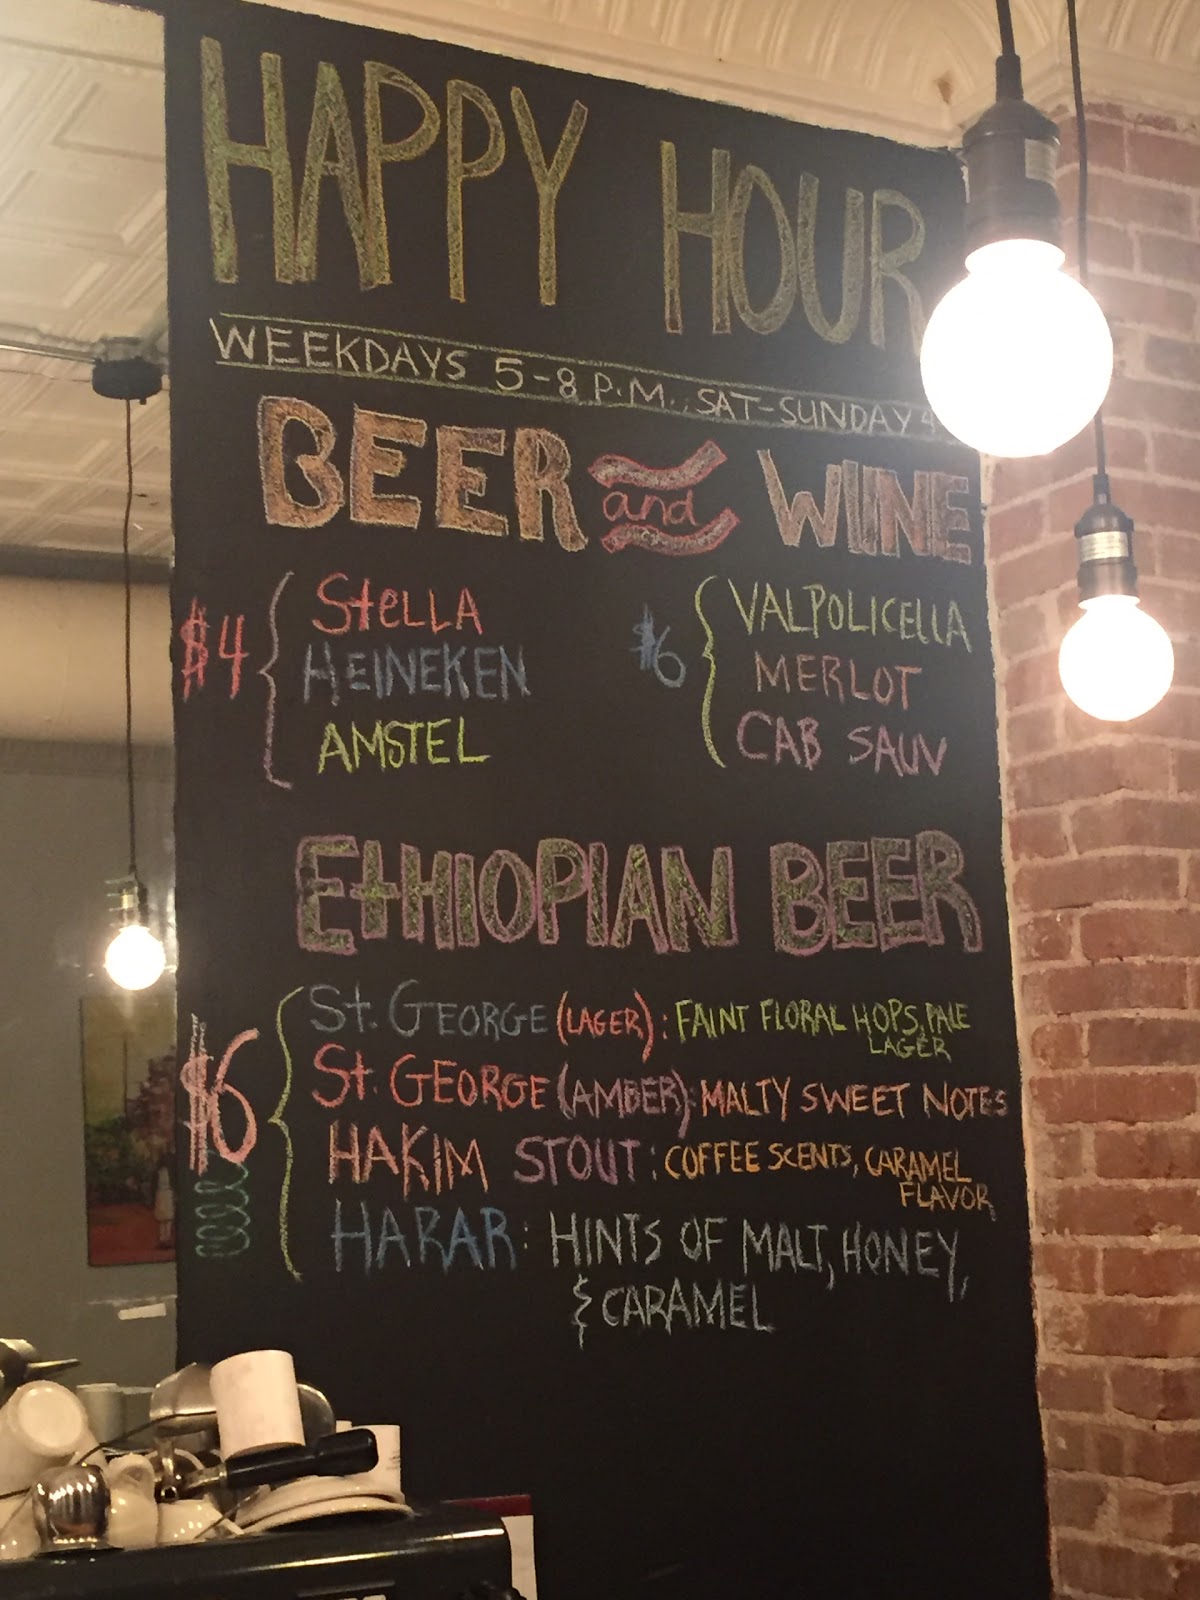 HAPPY HOUR
WEEKDAYS 5-8 P.M., SAT-SUNDAY 4
BEER and WINE
$4 { Stella
HEINEKEN
AMSTEL
$6 { VALPOLICELLA
MERLOT
CAB SAUV
ETHIOPIAN BEER
$6 { St. GEORGE (LAGER): FAINT FLORAL HOPS, PALE
LAGER
St. GEORGE (AMBER): MALTY SWEET NOTES
HAKIM STOUT: COFFEE SCENTS, CARAMEL
FLAVOR
HARAR: HINTS OF MALT, HONEY,
& CARAMEL